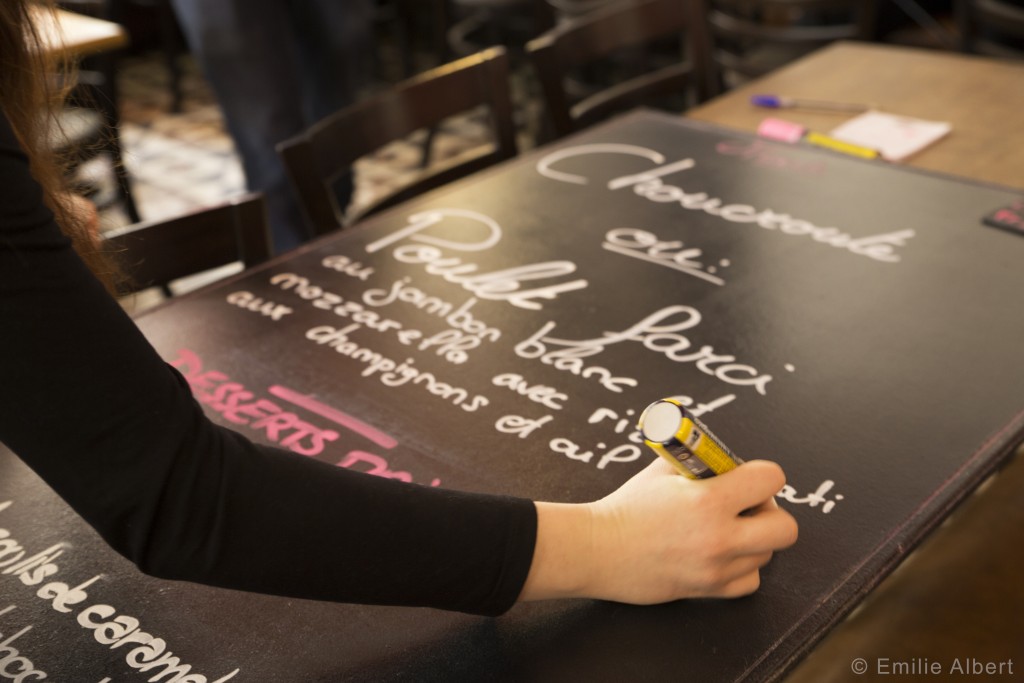 Choucroute
ou:
Poulet farci
au jambon blanc et
mozzarella avec
aux champignons et ail
DESSERTS
coulis de caramel
© Emilie Albert